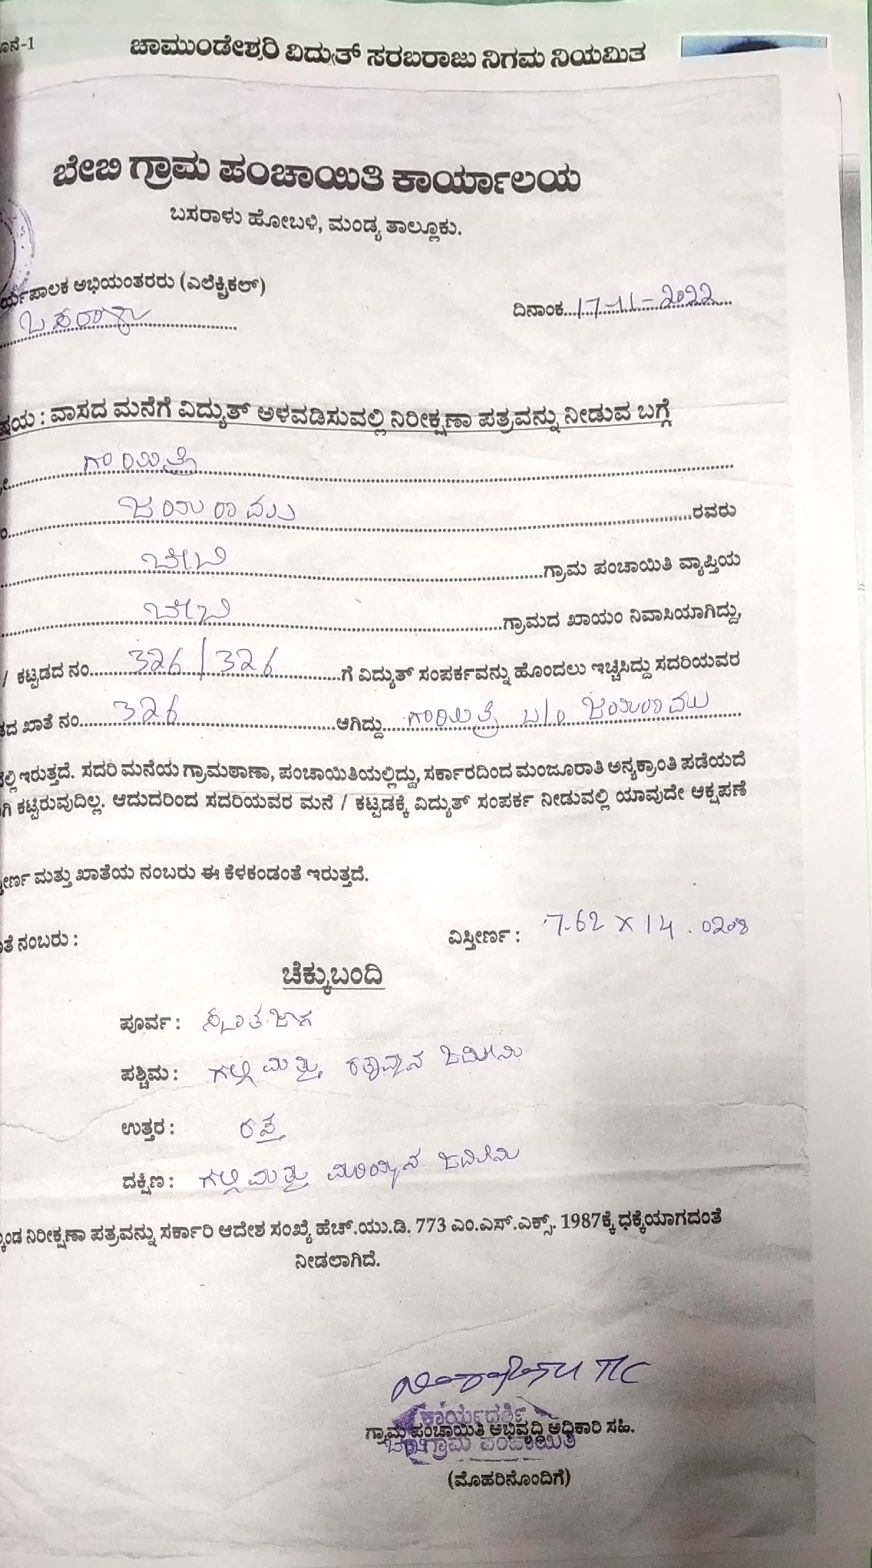 ನೆ-1
ಚಾಮುಂಡೇಶ್ವರಿ ವಿದ್ಯುತ್ ಸರಬರಾಜು ನಿಗಮ ನಿಯಮಿತ
ಬೇಬಿ ಗ್ರಾಮ ಪಂಚಾಯಿತಿ ಕಾರ್ಯಾಲಯ
ಬಸರಾಳು ಹೋಬಳಿ, ಮಂಡ್ಯ ತಾಲ್ಲೂಕು.
ರ್ಯಪಾಲಕ ಅಭಿಯಂತರರು (ಎಲೆಕ್ಟ್ರಿಕಲ್)
ಬಸರಾಳು
ದಿನಾಂಕ...17-11-2022
ಷಯ : ವಾಸದ ಮನೆಗೆ ವಿದ್ಯುತ್ ಅಳವಡಿಸುವಲ್ಲಿ ನಿರೀಕ್ಷಣಾ ಪತ್ರವನ್ನು ನೀಡುವ ಬಗ್ಗೆ
ಗಾಯಿತ್ರಿ
ಜಯರಾಮು ರವರು
ಬೇಬಿ ಗ್ರಾಮ ಪಂಚಾಯಿತಿ ವ್ಯಾಪ್ತಿಯ
ಬೇಬಿ ಗ್ರಾಮದ ಖಾಯಂ ನಿವಾಸಿಯಾಗಿದ್ದು,
/ ಕಟ್ಟಡದ ನಂ. 326/326 ಗೆ ವಿದ್ಯುತ್ ಸಂಪರ್ಕವನ್ನು ಹೊಂದಲು ಇಚ್ಚಿಸಿದ್ದು ಸದರಿಯವರ
ಡದ ಖಾತೆ ನಂ. 326 ಆಗಿದ್ದು ಗಾಯಿತ್ರಿ ಜಯರಾಮು
ಲ್ಲಿ ಇರುತ್ತದೆ. ಸದರಿ ಮನೆಯ ಗ್ರಾಮಠಾಣಾ, ಪಂಚಾಯಿತಿಯಲ್ಲಿದ್ದು, ಸರ್ಕಾರದಿಂದ ಮಂಜೂರಾತಿ ಅನ್ಯಕ್ರಾಂತಿ ಪಡೆಯದೆ
ಗಿ ಕಟ್ಟಿರುವುದಿಲ್ಲ. ಆದುದರಿಂದ ಸದರಿಯವರ ಮನೆ / ಕಟ್ಟಡಕ್ಕೆ ವಿದ್ಯುತ್ ಸಂಪರ್ಕ ನೀಡುವಲ್ಲಿ ಯಾವುದೇ ಆಕ್ಷಪಣೆ
ೀರ್ಣ ಮತ್ತು ಖಾತೆಯ ನಂಬರು ಈ ಕೆಳಕಂಡಂತೆ ಇರುತ್ತದೆ.
ತೆ ನಂಬರು : ವಿಸ್ತೀರ್ಣ : 7.62 X 14.0208
ಚೆಕ್ಕುಬಂದಿ
ಪೂರ್ವ : ಸ್ವಂತ ಜಾಗ
ಪಶ್ಚಿಮ : ಗಲ್ಲಿ ಮತ್ತು ಜಮೀನು
ಉತ್ತರ : ರಸ್ತೆ
ದಕ್ಷಿಣ : ಗಲ್ಲಿ ಮತ್ತು ಜಮೀನು
ಕಂಡ ನಿರೀಕ್ಷಣಾ ಪತ್ರವನ್ನು ಸರ್ಕಾರಿ ಆದೇಶ ಸಂಖ್ಯೆ ಹೆಚ್.ಯು.ಡಿ. 773 ಎಂ.ಎಸ್.ಎಕ್ಸ್. 1987ಕ್ಕೆ ಧಕ್ಕೆಯಾಗದಂತೆ
ನೀಡಲಾಗಿದೆ.
ಕಾರ್ಯದರ್ಶಿ
ಗ್ರಾಮ ಪಂಚಾಯಿತಿ ಅಭಿವೃದ್ಧಿ ಅಧಿಕಾರಿ ಸಹಿ.
ಬೇಬಿ ಗ್ರಾಮ ಪಂಚಾಯಿತಿ
(ಮೊಹರಿನೊಂದಿಗೆ)